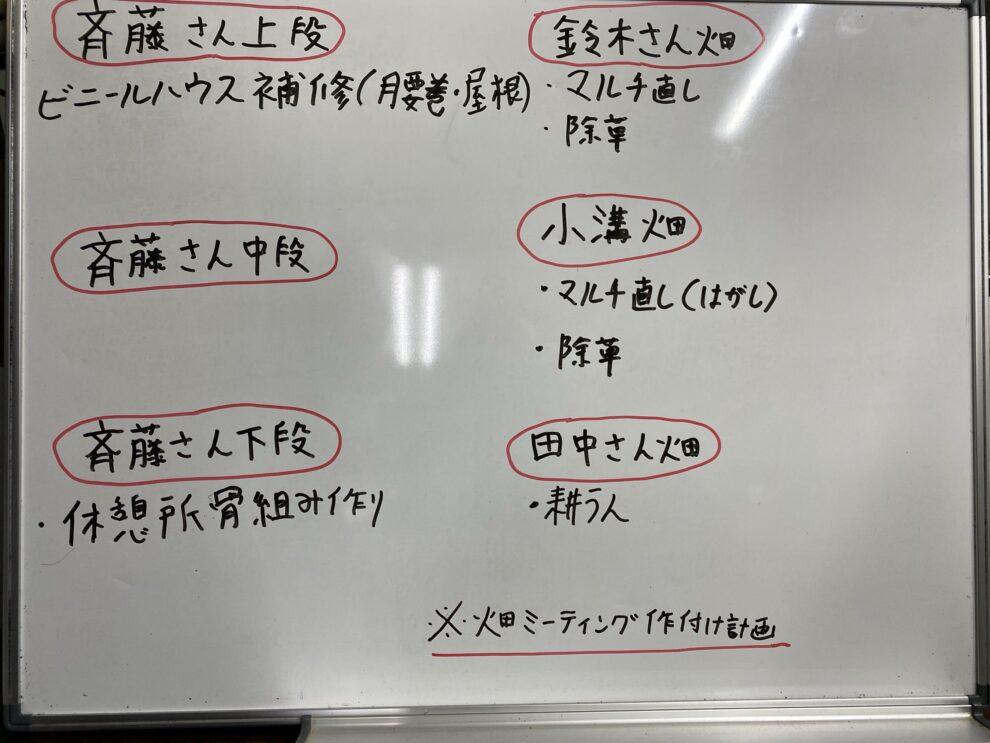 斉藤さん上段
ビニールハウス補修(腰巻・屋根)
斉藤さん中段
斉藤さん下段
・休憩所骨組み作り
鈴木さん畑
・マルチ直し
・除草
小溝畑
・マルチ直し(はがし)
・除草
田中さん畑
・耕うん
※畑ミーティング作付け計画